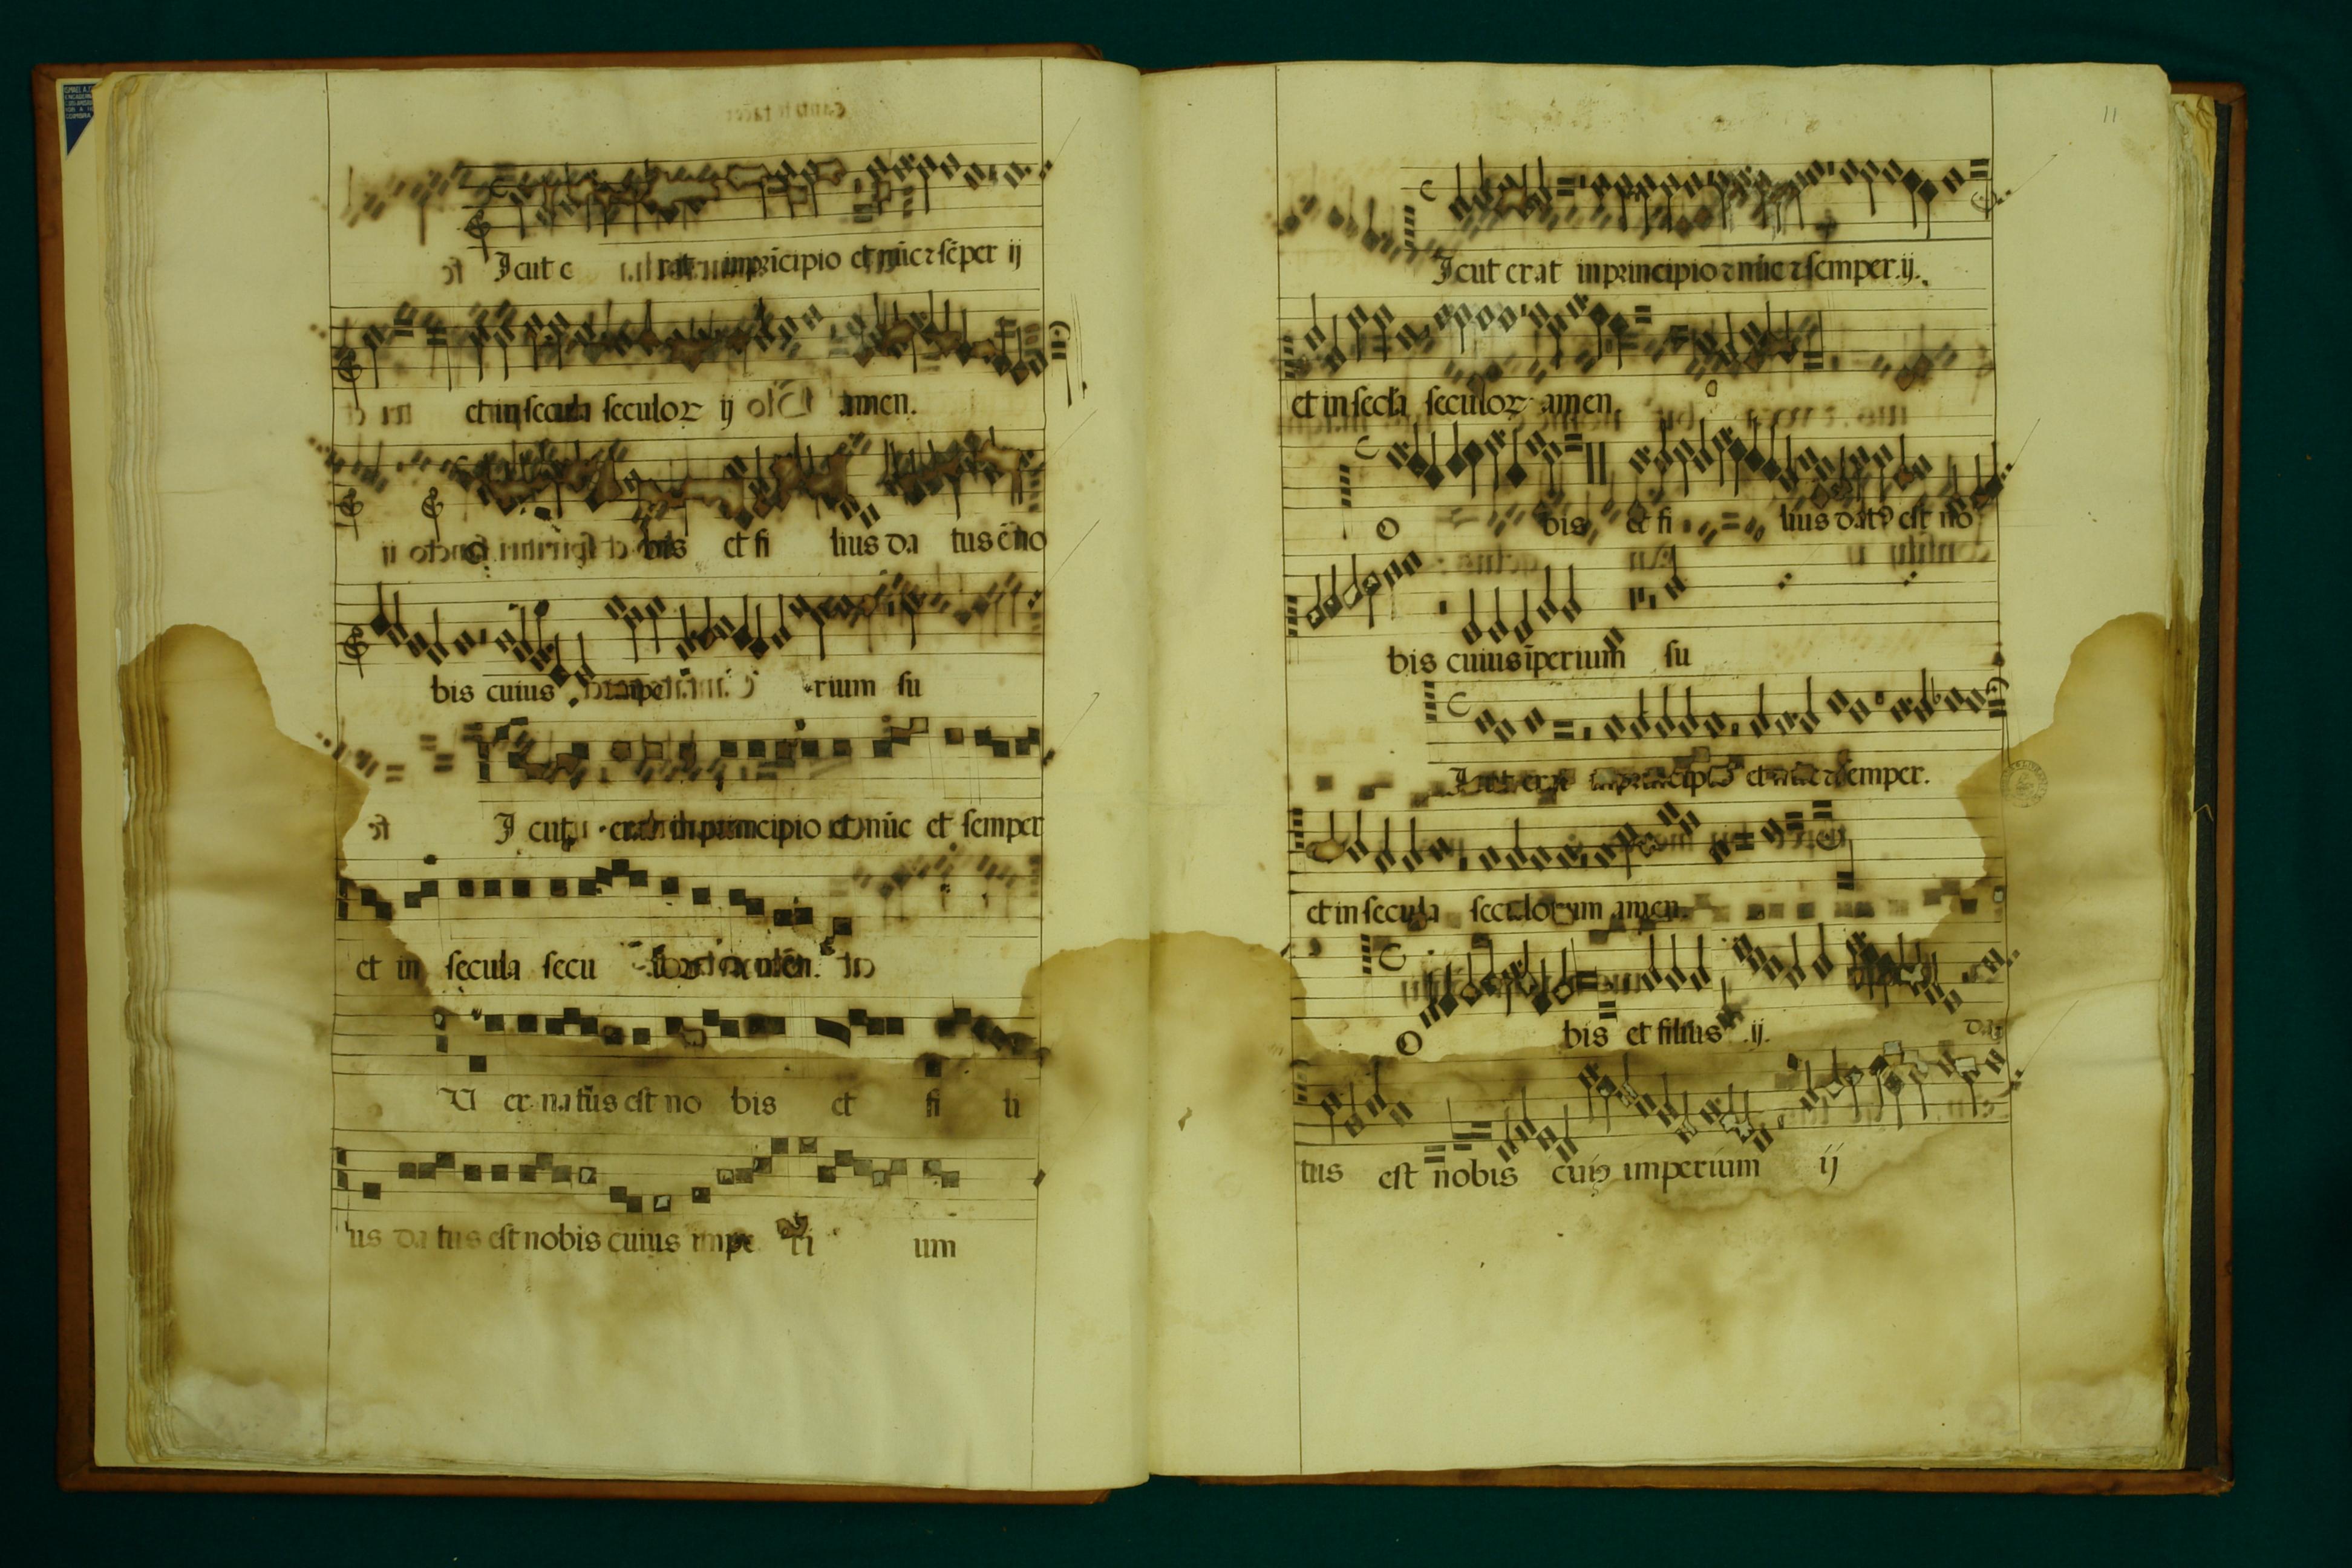 Icut e rat inprīcipio et nūc ꞇ sēper ij
et in secula seculoꝝ ij amen.
bis et fi lius da tus ē no
bis cuius impe rium su
I cut erat in principio et nūc et semper
et in secula secu
U er natus est no bis et fi li
us da tus est nobis cuius impe ri um
11
Icut erat in principio ꞇ nūc ꞇ semper .ij.
et in secła seculoꝝ amen.
O bis et fi lius datꝰ est no
bis cuius īperium su
Icut erat in principio et nūc ꞇ semper.
et in secula seculorum amen.
O bis et filius .ij. da
tus est nobis cuiꝰ imperium ij